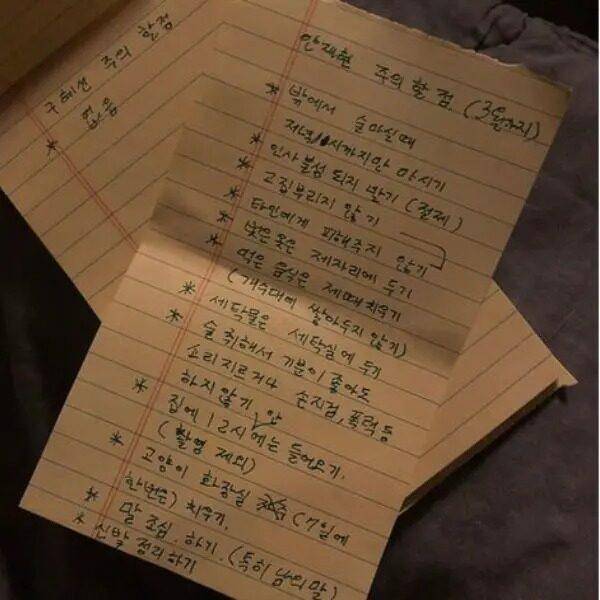 구혜선 주의 할점
* 없음
안재현 주의 할 점 (3월까지)
* 밖에서 술마실때
저녁 10시까지만 마시기
* 인사불성 되지 말기 (절제)
* 고집부리지 않기
* 타인에게 피해주지 않기
* 벗은 옷은 제자리에 두기
* 먹은 음식은 제때 치우기
(개수대에 쌓아두지 않기)
* 세탁물은 세탁실에 두기
* 술 취해서 기분이 좋아도
소리지르거나 손지검, 폭력 등
하지 않기 안
* 집에 12시에는 들어오기.
(촬영 제외)
* 고양이 화장실 (7일에
한번은) 치우기.
* 말 조심. 하기. (특히 남의 말)
* 신발 정리하기